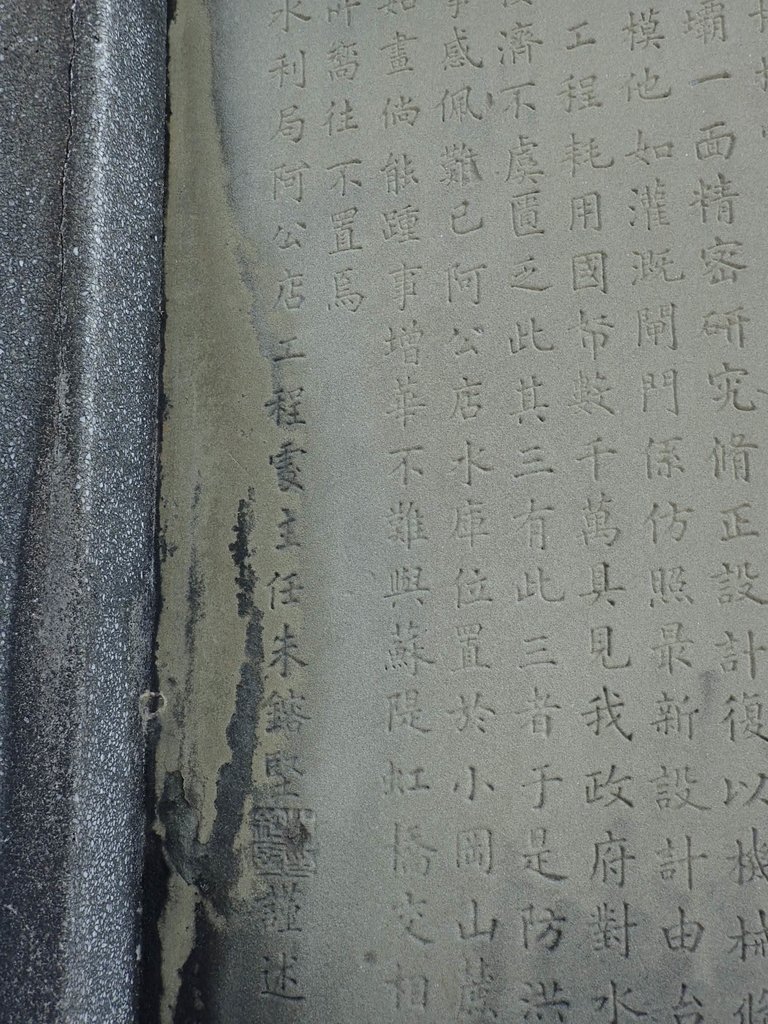 壩一面精密硏究修正設計復以機械
模他如灌溉閘門係仿照最新設計由台
工程耗用國幣數千萬具見我政府對水
濟不虞匱乏此其三有此三者于是防洪
感佩難已阿公店水庫位置於小岡山麓
如畫倘能踵事增華不難與蘇隄虹橋交相
嚮往不置焉
水利局阿公店工程處主任朱鎔堅謹述